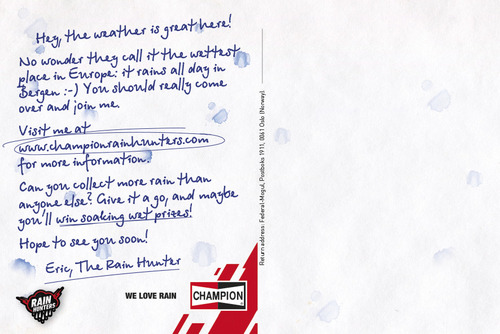 Hey, the weather is great here!
No wonder they call it the wettest
place in Europe: it rains all day in
Bergen :-) You should really come
over and join me.
Visit me at
www.championrainhunters.com
for more information.
Can you collect more rain than
anyone else? Give it a go, and maybe
you'll win soaking wet prizes!
Hope to see you soon!
Eric, The Rain Hunter
RAIN
HUNTERS
WE LOVE RAIN
CHAMPION
Return address: Federal-Mogul, Postboks 1911, 0041 Oslo (Norway).